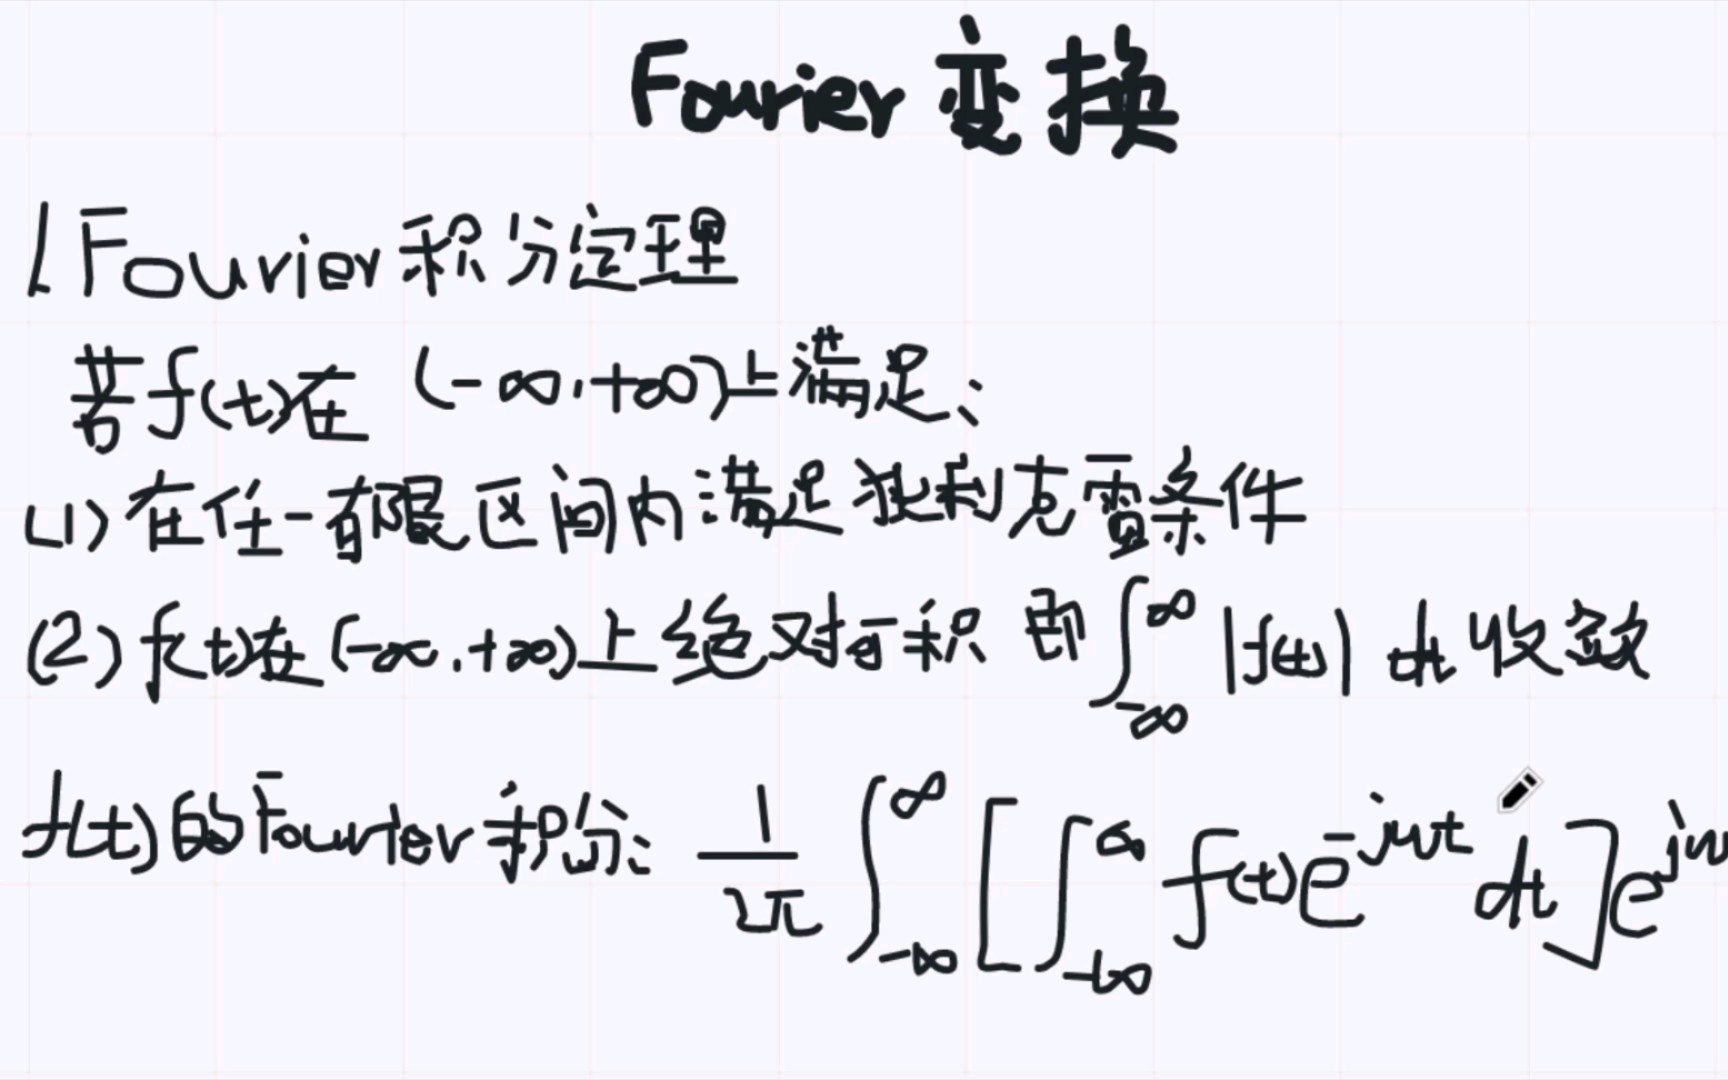 Fourier 变换
1. Fourier 积分定理
若 f(t)在 (-∞,+∞)上满足:
(1) 在任一有限区间内满足狄利克雷条件
(2) f(t)在(-∞,+∞)上绝对可积 即∫_{-∞}^{∞} |f(t)| dt 收敛
f(t)的Fourier积分: \frac{1}{2π} ∫_{-∞}^{∞} [∫_{-∞}^{∞} f(t)e^{-jwt} dt] e^{jw